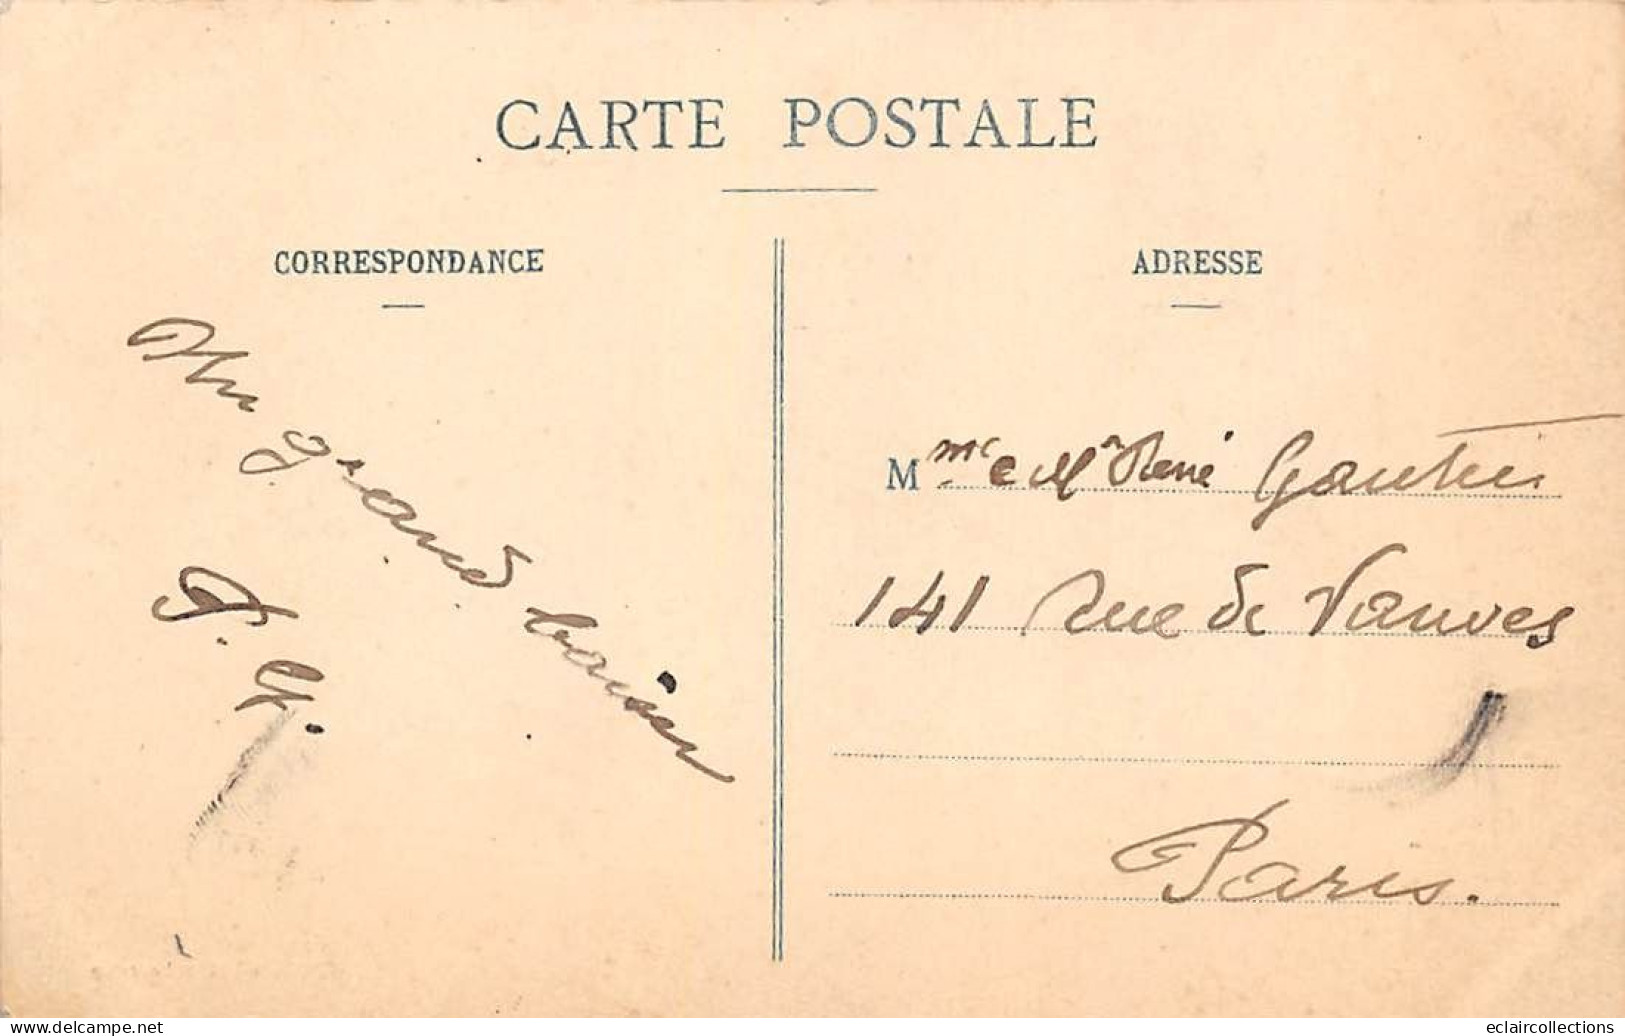 CARTE POSTALE
CORRESPONDANCE
ADRESSE
Un grand baiser
P. G.
Mme e Mr René Gautier
141 Rue de Vanves
Paris.
www.delcampe.net
eclaircollections